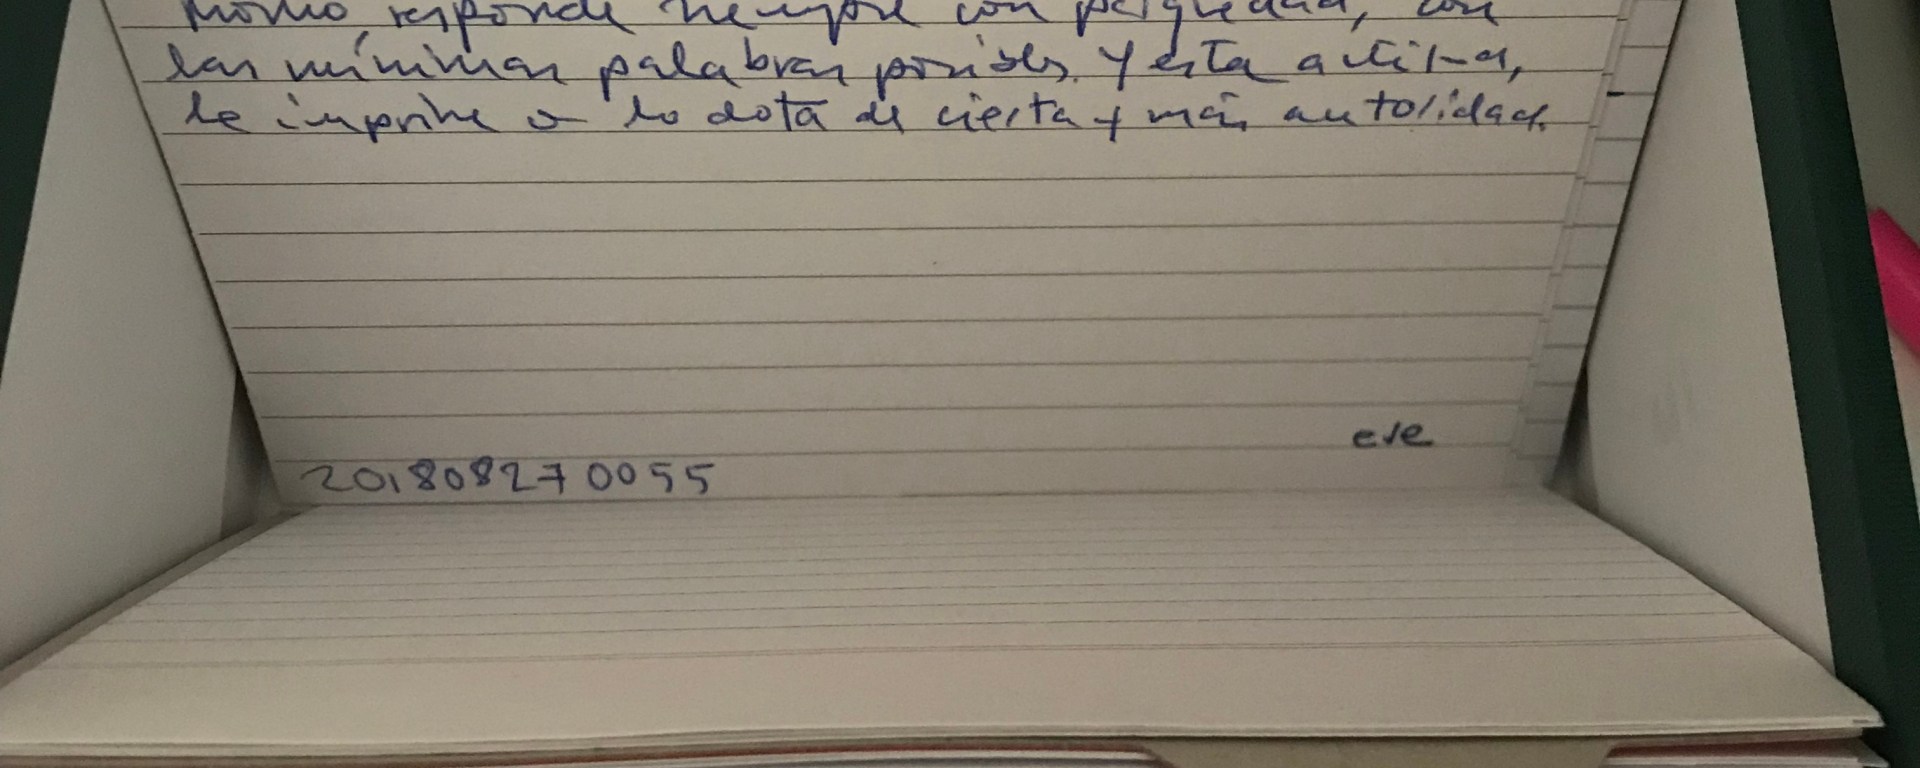 Momo, responde siempre con parquedad, con
las mínimas palabras posibles. Y esta actitud,
le imprime o lo dota de cierta y más autoridad.
eve
201808270055